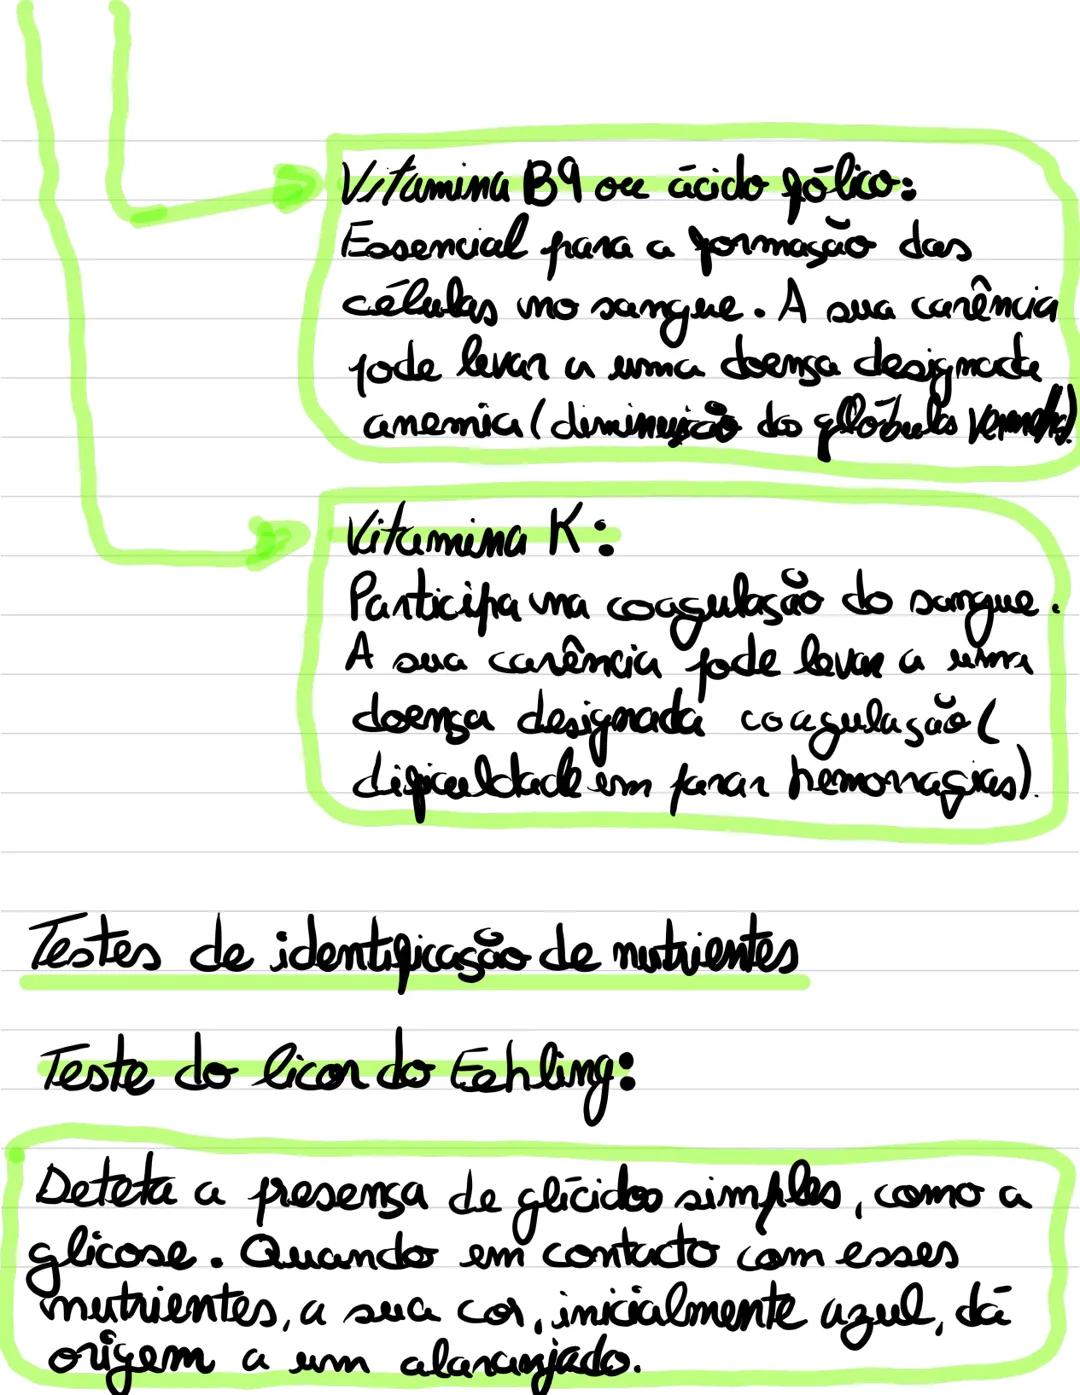 Vitamina B9 ou ácido fólico:
Essencial para a formação das
células no sangue. A sua carência
pode levar a uma doença designada
anemia (diminuição do glóbulos vermelhos).
Vitamina K:
Participa na coagulação do sangue.
A sua carência pode levar a uma
doença designada coagulação (
dificuldade em parar hemorragias).
Testes de identificação de nutrientes
Teste do licor do Fehling:
Deteta a presença de glícidos simples, como a
glicose. Quando em contacto com esses
nutrientes, a sua cor, inicialmente azul, dá
origem a um alaranjado.